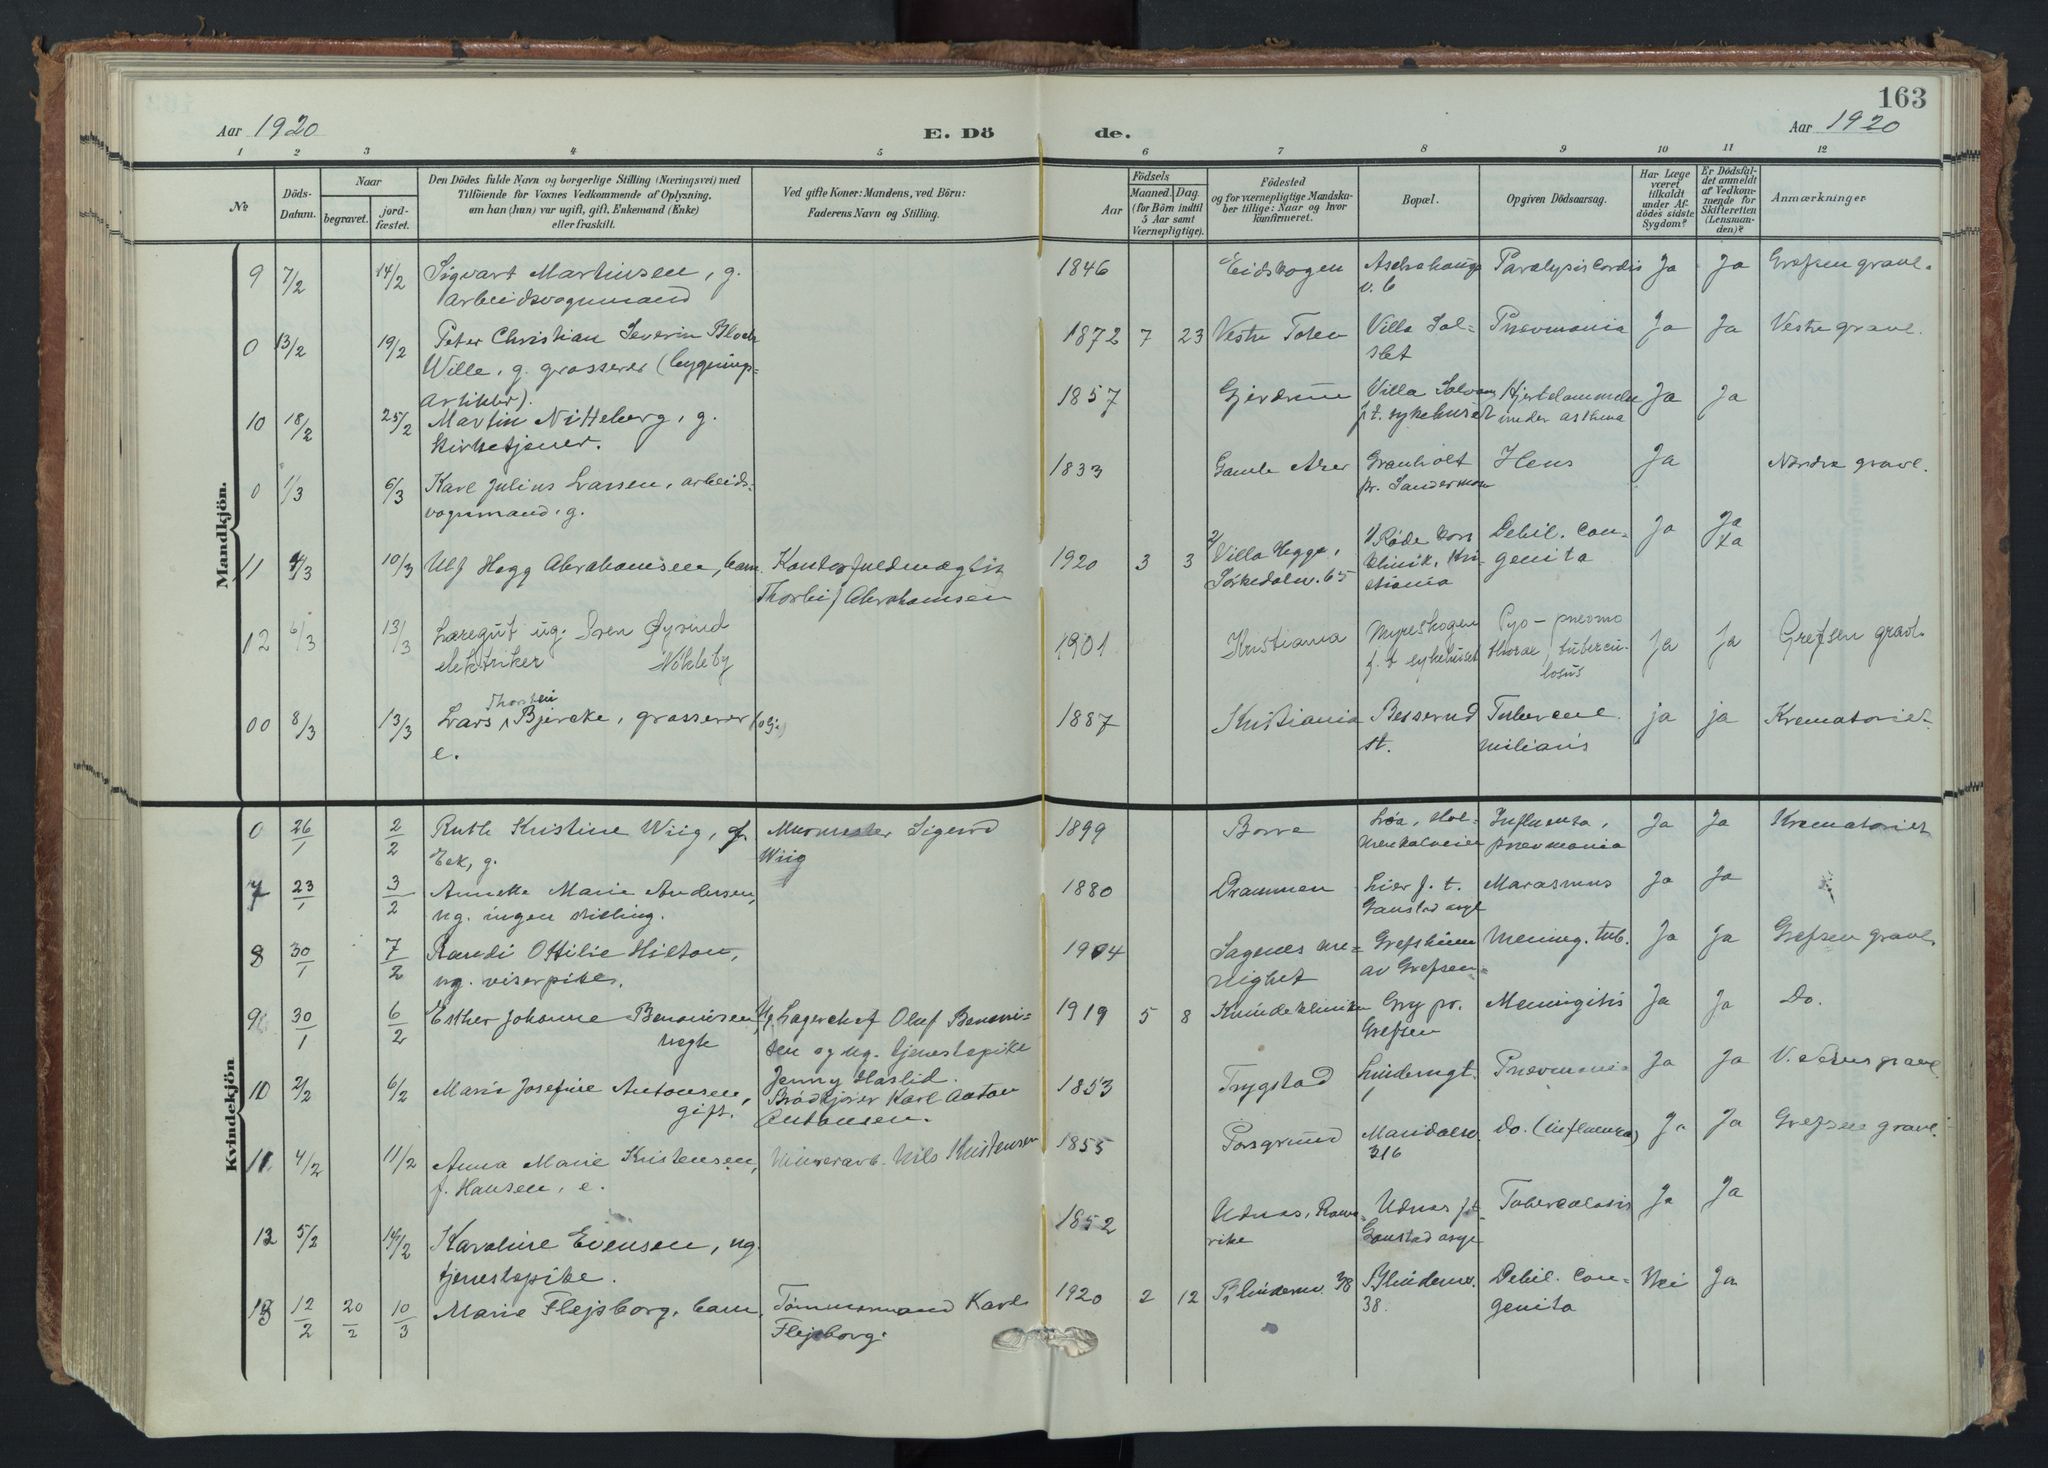 163
Aar 1920
E. Döde.
Aar 1920
1 2 3 4 5 6 7 8 9 10 11 12
No.
Döds-Datum.
Naar
begravet.
jord-fæstet.
Den Dödes fulde Navn og borgerlige Stilling (Næringsvei) med
Tilföiende for Voxnes Vedkommende af Oplysning,
om han (hun) var ugift, gift, Enkemand (Enke)
eller fraskilt.
Ved gifte Koner: Mandens, ved Börn:
Faderens Navn og Stilling.
Födsels
Aar
Maaned. Dag.
(for Börn indtil
5 Aar samt
Værnepligtige).
Födested
og for værnepligtige Mandska-
ber tillige: Naar og hvor
konfirmeret.
Bopæl.
Opgiven Dödsaarsag.
Har Læge
været
tilkaldt
under Af-
dödes sidste
Sygdom?
Er Dödsfal-
det anmeldt
af Vedkom-
mende for
Skifteretten
(Lensman-
den)?
Anmærkninger
Mandkjön.
9 7/2 14/2 Sigvart Martinsen, g. 1846 Eidskogen Paralysis cordis Ja Ja Grefsen gravl.
arbeidsvognmand
0 13/2 19/2 Peter Christian Severin Bloch 1872 7 23 Vestre Toten Villa Sol- Pnevmonia Ja Ja Vestre gravl.
Wille, g. grosserer (bygnings- slet
artikler).
10 18/2 25/2 Martin Nitteberg, g. 1857 Gjerdrum Villa Ja Ja
kirketjener. p.t. sykehuset under asthma
0 1/3 6/3 Karl Julius Larsen, arbeids- 1833 Gamle Aker Granholt Ja Nordre gravl.
vognmand, g. pr.
11 4/3 10/3 Ulf Hegg Abrahamsen, barn. Kontorfuldmægtig 1920 3 3 Villa Hegge, Røde Kors Debil. con- Ja Ja
Thorleif Abrahamsen Sørkedalsv. 65 klinik, Kri- genita
stiania
12 6/3 13/3 Læregut ug. Sven Øyvind 1901 Kristiania Myrskogen Pyo-pneumo Ja Ja Grefsen gravl.
elektriker Nökleby p.t. sykehuset thorax tubercu-
losus
00 8/3 13/3 Lars Thorstein Bjercke, grosserer (olje) 1887 Kristiania Besserud Tubercul. ja ja Krematoriet.
e. st. miliaris
Kvindekjön
0 26/1 2/2 Ruth Kristine Wiig, f. Murmester Sigurd 1899 Borre Influensa, Ja Ja Krematoriet
Eek, g. Wiig pnevmonia
7 23/1 3/2 Annette Marie Andersen, 1880 Drammen Lier p.t. Marasmus Ja Ja
ug. ingen stilling. Gaustad asyl
8 30/1 7/2 Randi Ottilie Hilton, 1904 Sagenes me- Grefsheim Mening. tub. Ja Ja Grefsen gravl.
ug. viserpike. nighet av Grefsen
9 30/1 6/2 Esther Johanne Benonisen, Ug. Lagerchef Oluf Benoni- 1919 5 8 Kvindeklinikken Gry pr. Meningitis Ja Ja Do.
uegte sen og ug. tjenestepike Grefsen
Jenny Haslid.
10 2/2 6/2 Marie Josefine Antonsen, Brødkjører Karl Anton 1853 Trygstad Pnevmonia Ja Ja V. Akers gravl.
gift. Antonsen.
11 4/2 11/2 Anna Marie Kristensen, Murerarb. Nils Kristensen 1855 Porsgrund Maridalsv. Do. (influenza) Ja Ja Grefsen gravl.
f. Hansen, e. 316
12 5/2 14/2 Karoline Evensen, ug. 1852 Udnæs, Rome- Udnæs p.t. Tuberculosis Ja Ja
tjenestepike. rike Gaustad asyl
13 12/2 20/2 10/3 Marie Flejsborg, barn. Tømmermand Karl 1920 2 12 Blindernv. 38 Blindernv. Debil. con- Nei Ja
Flejsborg. 38. genita